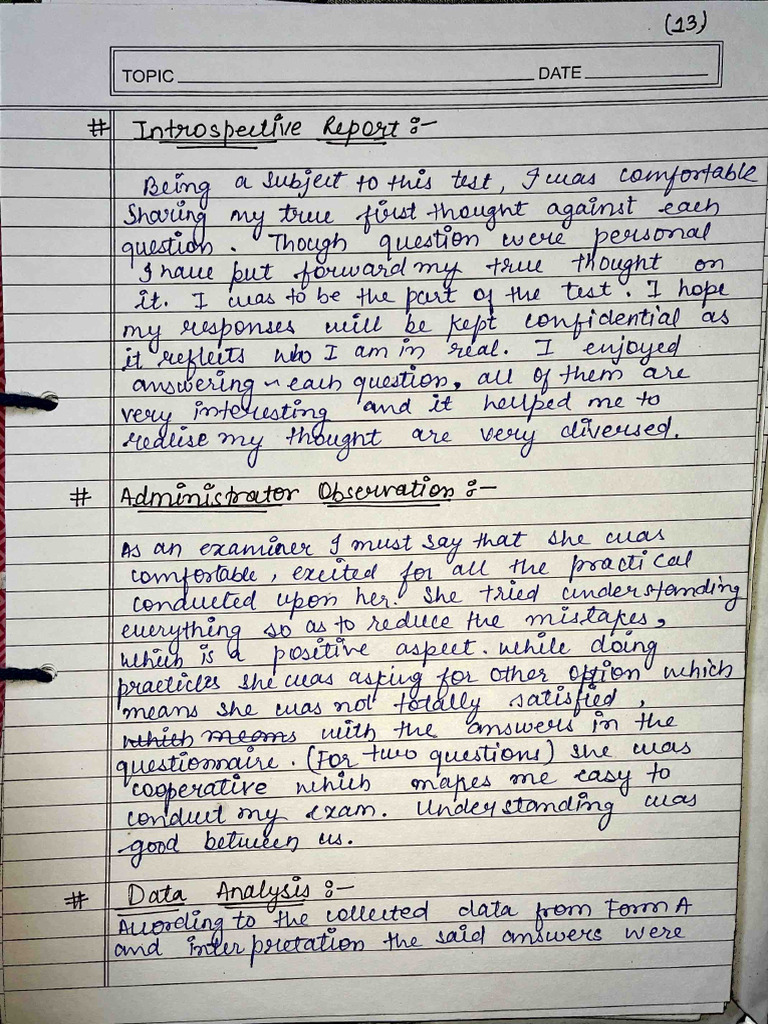 (13)
TOPIC DATE
# Introspective Report :-
Being a subject to this test, I was comfortable
sharing my true first thought against each
question. Though question were personal
I have put forward my true thought on
it. I was to be the part of the test. I hope
my responses will be kept confidential as
it reflects who I am in real. I enjoyed
answering each question, all of them are
very interesting and it hellped me to
realise my thought are very diversed.
# Administrator Observation :-
As an examiner I must say that she was
comfortable, excited for all the practical
conducted upon her. She tried understanding
everything so as to reduce the mistakes,
which is a positive aspect. while doing
practicles she was asking for other option which
means she was not totally satisfied,
which means with the answers in the
questionnaire. (For two questions) she was
cooperative which makes me easy to
conduct my exam. Understanding was
good between us.
# Data Analysis :-
According to the collected data from Form A
and interpretation the said answers were